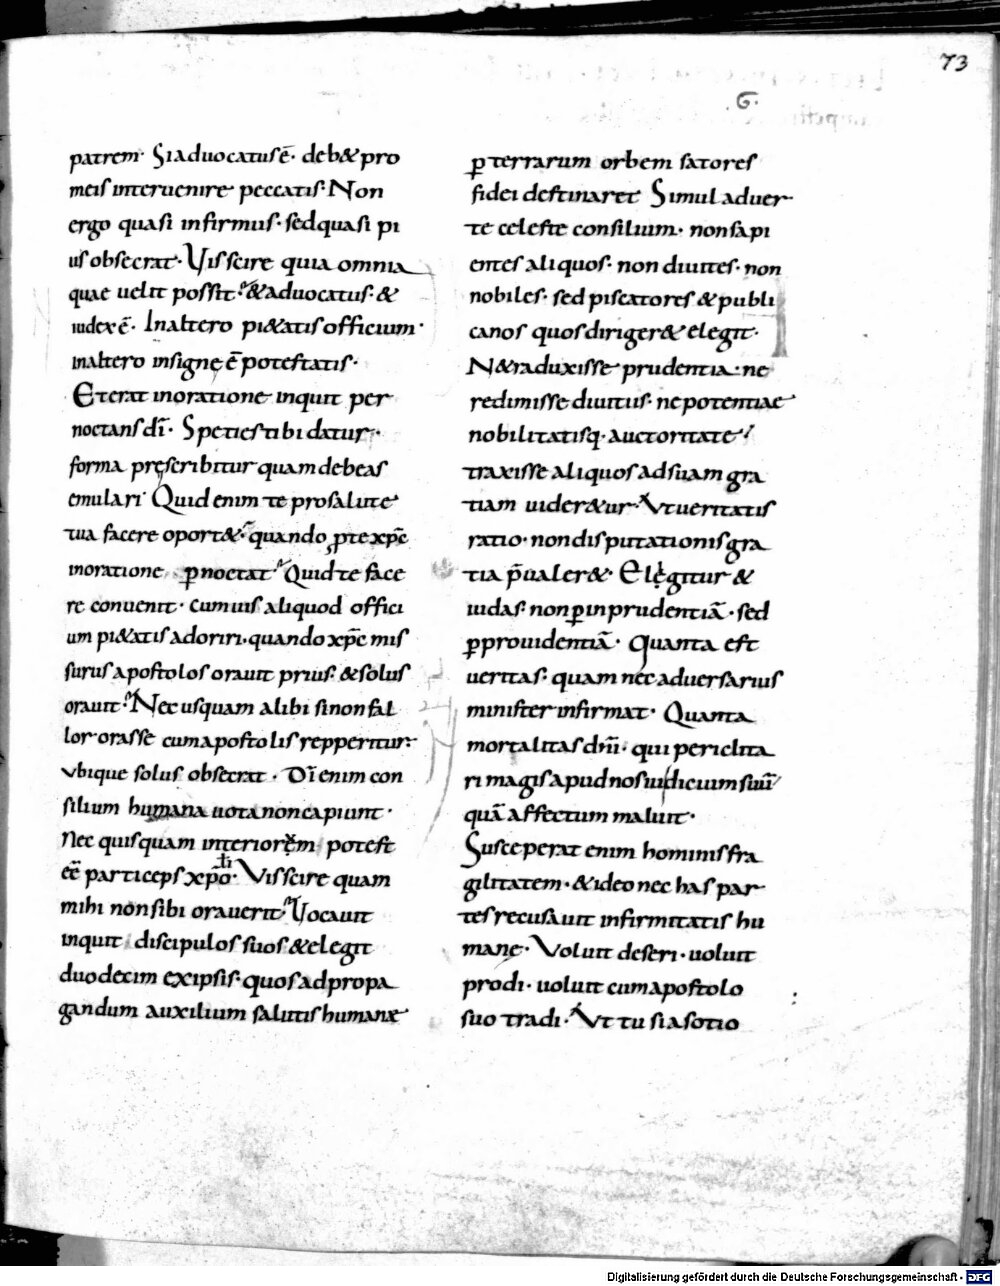 73
G.
patrem· Si aduocatus ē· deb& pro
meis interuenire peccatis· Non
ergo quasi infirmus· sed quasi pi
us obsecrat· Vis scire quia omnia
quae uelit possit· & aduocatus· &
iudex ē· In altero pi&atis officium·
in altero insigne ē potestatis·
Et erat in oratione inquit per
noctans dī· Species tibi datur·
forma prescribitur quam debeas
emulari· Quid enim te pro salute
tua facere oport&· quando p te xp̄c
in oratione pnoctat· Quid te face
re conuenit· cum uis aliquod offici
um pi&atis adoriri· quando xp̄c mis
surus apostolos orauit prius· & solus
orauit· Nec usquam alibi si non fal
lor orasse cum apostolis repperitur·
Vbique solus obsecrat· Dī enim con
silium humana uota non capiunt·
Nec quisquam interiorem potest
eē particeps xpō· Vis scire quam
mihi non sibi orauerit· Vocauit
inquit discipulos suos & elegit
duodecim ex ipsis· quos ad propa
gandum auxilium salutis humane
p terrarum orbem satores
fidei destinaret Simul aduer
te celeste consilium· non sapi
entes aliquos· non diuites· non
nobiles· sed piscatores & publi
canos quos dirigeret elegit·
N& raduxisse prudentia· ne
redimisse diuitiis· ne potentiae
nobilitatisq· auctoritate
traxisse aliquos ad suam gra
tiam uider&ur· Vt ueritatis
ratio· non disputationis gra
tia p̄ualer&· Elegitur &
iudas· non p inprudentiā· sed
p prouidentiā· Quanta est
ueritas· quam nec aduersarius
minister infirmat· Quanta
mortalitas dnī· qui periclita
ri magis apud nos iudicium suū
quā affectum maluit·
Susceperat enim hominis fra
gilitatem· & ideo nec has par
tes recusauit infirmitatis hu
mane· Voluit deseri· uoluit
prodi· uoluit cum apostolo
suo tradi· Vt tu si a sotio
Digitalisierung gefördert durch die Deutsche Forschungsgemeinschaft - DFG